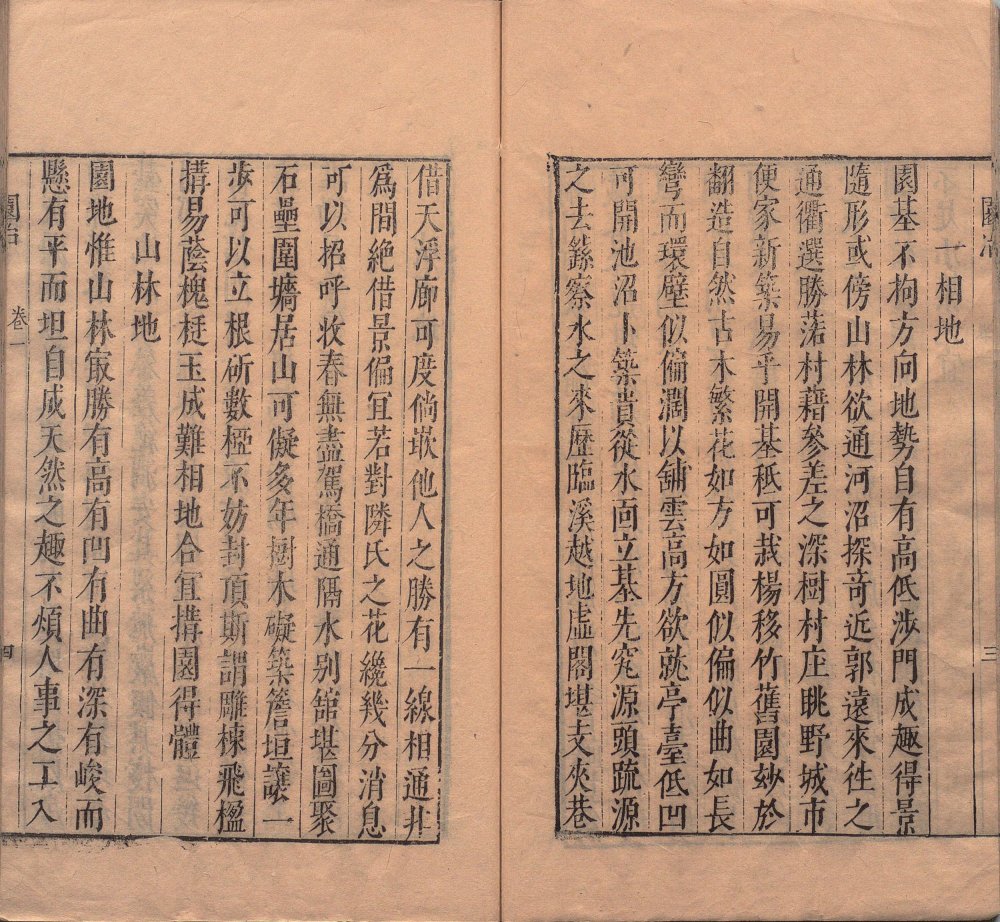 園冶
三
一相地
園基不拘方向地勢自有高低涉門成趣得景
隨形或傍山林欲通河沼探奇近郭遠來徃之
通衢選勝落村藉參差之深樹村庄眺野城市
便家新築易乎開基秪可栽楊移竹舊園妙於
翻造自然古木繁花如方如圓似偏似曲如長
彎而環壁似偏濶以鋪雲高方欲就亭臺低凹
可開池沼卜築貴從水面立基先究源頭疏源
之去繇察水之來歷臨溪越地虛閣堪支夾巷
借天浮廊可度倘嵌他人之勝有一線相通非
爲間絕借景偏宜若對隣氏之花纔幾分消息
可以招呼收春無盡駕橋通隔水别舘堪圖聚
石壘圍墻居山可儗多年樹木礙築簷垣讓一
步可以立根斫數椏不妨封頂斯謂雕棟飛楹
搆易蔭槐挺玉成難相地合宜搆園得體
山林地
園地惟山林㝡勝有高有凹有曲有深有峻而
懸有平而坦自成天然之趣不煩人事之工入
園冶
卷一
四